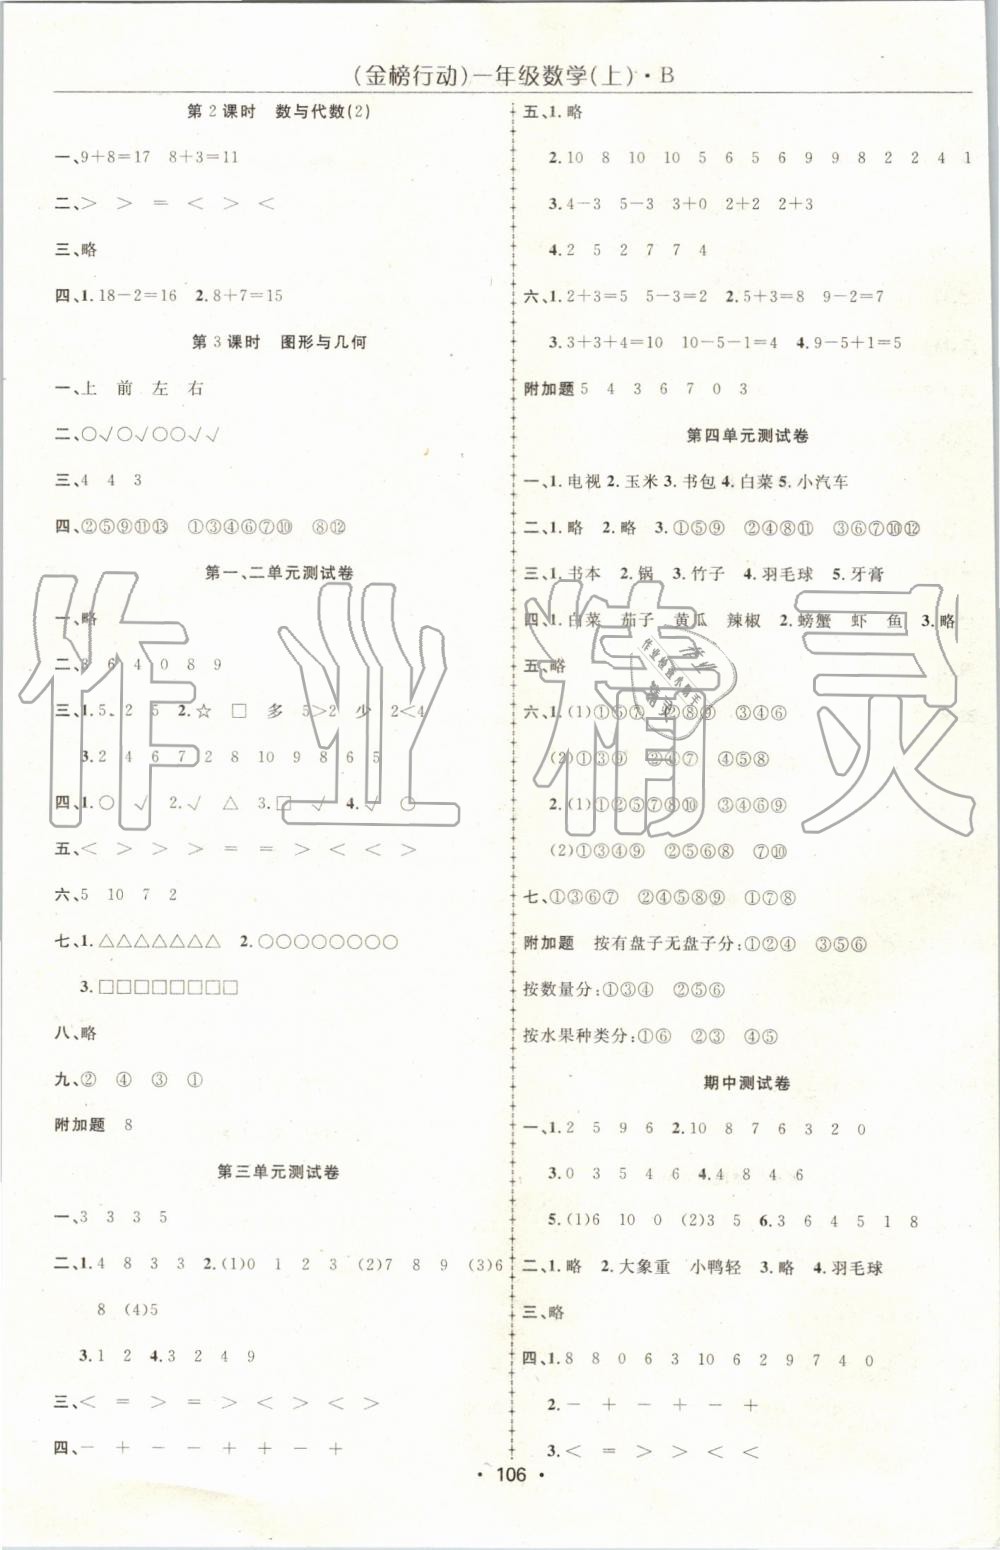 (金榜行动)一年级数学(上)·B
第2课时 数与代数(2)
一、9+8=17 8+3=11
二、> > = < > <
三、略
四、1.18-2=16 2.8+7=15
第3课时 图形与几何
一、上 前 左 右
二、○√○√○○√√
三、4 4 3
四、②⑤⑨⑪⑬ ①③④⑥⑦⑩ ⑧⑫
第一、二单元测试卷
一、略
二、3 6 4 0 8 9
三、1.5、2 5 2.☆ □ 多 5>2 少 2<4
3.2 4 6 7 2 8 10 9 8 6 5
四、1.○ √ 2.√ △ 3.□ √ 4.√ ○
五、< > > > = = > < < >
六、5 10 7 2
七、1.△△△△△△△ 2.○○○○○○○○
3.□□□□□□□□
八、略
九、② ④ ③ ①
附加题 8
第三单元测试卷
一、3 3 3 5
二、1.4 8 3 3 2.(1)0 1 2 3 (2)7 8 9 (3)6
8 (4)5
3.1 2 4.3 2 4 9
三、< = > = > < > < >
四、- + - - + + - +
五、1.略
2.10 8 10 10 5 6 5 6 9 9 8 2 2 4 1
3.4-3 5-3 3+0 2+2 2+3
4.2 5 2 7 7 4
六、1.2+3=5 5-3=2 2.5+3=8 9-2=7
3.3+3+4=10 10-5-1=4 4.9-5+1=5
附加题 5 4 3 6 7 0 3
第四单元测试卷
一、1.电视 2.玉米 3.书包 4.白菜 5.小汽车
二、1.略 2.略 3.①⑤⑨ ②④⑧⑪ ③⑥⑦⑩⑫
三、1.书本 2.锅 3.竹子 4.羽毛球 5.牙膏
四、1.白菜 茄子 黄瓜 辣椒 2.螃蟹 虾 鱼 3.略
五、略
六、1.(1)①⑤⑦ ②⑧⑨ ③④⑥
(2)①③⑨ ②⑥⑦ ④⑤⑧
2.(1)①②⑤⑦⑧⑩ ③④⑥⑨
(2)①③④⑨ ②⑤⑥⑧ ⑦⑩
七、①③⑥⑦ ②④⑤⑧⑨ ①⑦⑧
附加题 按有盘子无盘子分:①②④ ③⑤⑥
按数量分:①③④ ②⑤⑥
按水果种类分:①⑥ ②③ ④⑤
期中测试卷
一、1.2 5 9 6 2.10 8 7 6 3 2 0
3.0 3 5 4 6 4.4 8 4 6
5.(1)6 10 0 (2)3 5 6.3 6 4 5 1 8
二、1.略 2.大象重 小鸭轻 3.略 4.羽毛球
三、略
四、1.8 8 0 6 3 10 6 2 9 7 4 0
2.- + - + - +
3.< = > > < <
·106·
作业精灵